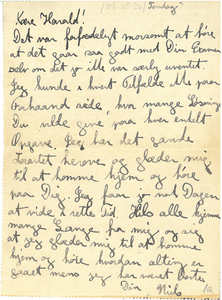 Søndag
Kære Harald!
Det var forfærdeligt morsomt at høre
at det gaar saa godt med Din Examen
selv om det jo ikke var særlig uventet.
Jeg kunde i hvert Tilfælde
paa Forhaand vide, hvor mange
Du vilde give paa hver enkelt
Opgave. Jeg har det gande
herovre og glæder mig
til at komme hjem og høre
paa Dig. Jeg faar jo nok Dagen
at vide i rette Tid. Hils alle hjemme
mange Gange fra mig og sig
at jeg glæder mig til at komme
hjem og høre hvordan alting er
gaaet mens jeg har været borte
Din Niels